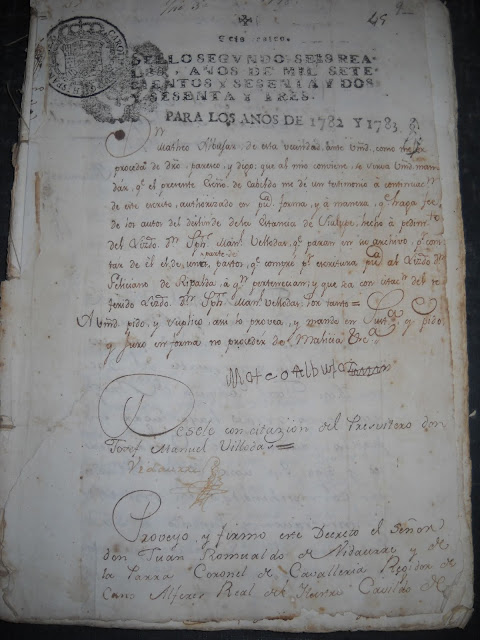 49
Seis reales.
SELLO SEGVNDO SEIS REA-
LES, AÑOS DE MIL SETE-
CIENTOS Y SESENTA Y DOS
Y SESENTA Y TRES.
PARA LOS AÑOS DE 1782 Y 1783.
Dn Matheo Albujar de esta vecindad, ante Vmd, como mejor
proceda de dro. paresco, y digo: que al mio conviene, se sirva Vmd. man-
dár, qe. el presente Esño. de Cabildo me dé un testimonio à continuaon.
de este escrito, authorizado en forma, y à manera, qe. haga fee,
de los autos del deslinde de la Estancia de hecho à pedimto.
del Lizdo. Dn. Jph. Manl. Velledas, qe. paran en su archivo, qe. cons-
tar de él el de, unos pastos, qe. compró pr. escritura al Lizdo. Dn.
parte de
Feliciano de à qn. pertenecian, y que sea con citacn. del re-
ferido Lizdo. Dn. Jph. Manl. Velledas. Por tanto =
A Vmd. pido, y suplico, asi lo provea, y mande en Justa. qe. pido
y Juro en forma no proceder de Malicia &c.a
Mateo Albujar
Desele con citazion del Presvitero don
Josef Manuel Villedas =
Vidaurre
Proveyo, y firmo este Decreto el Señor
don Juan Romualdo de Vidaurre y de
la Parra Coronel de Cavalleria Regidor de
cano Alferes Real del Ilustre Cavildo de